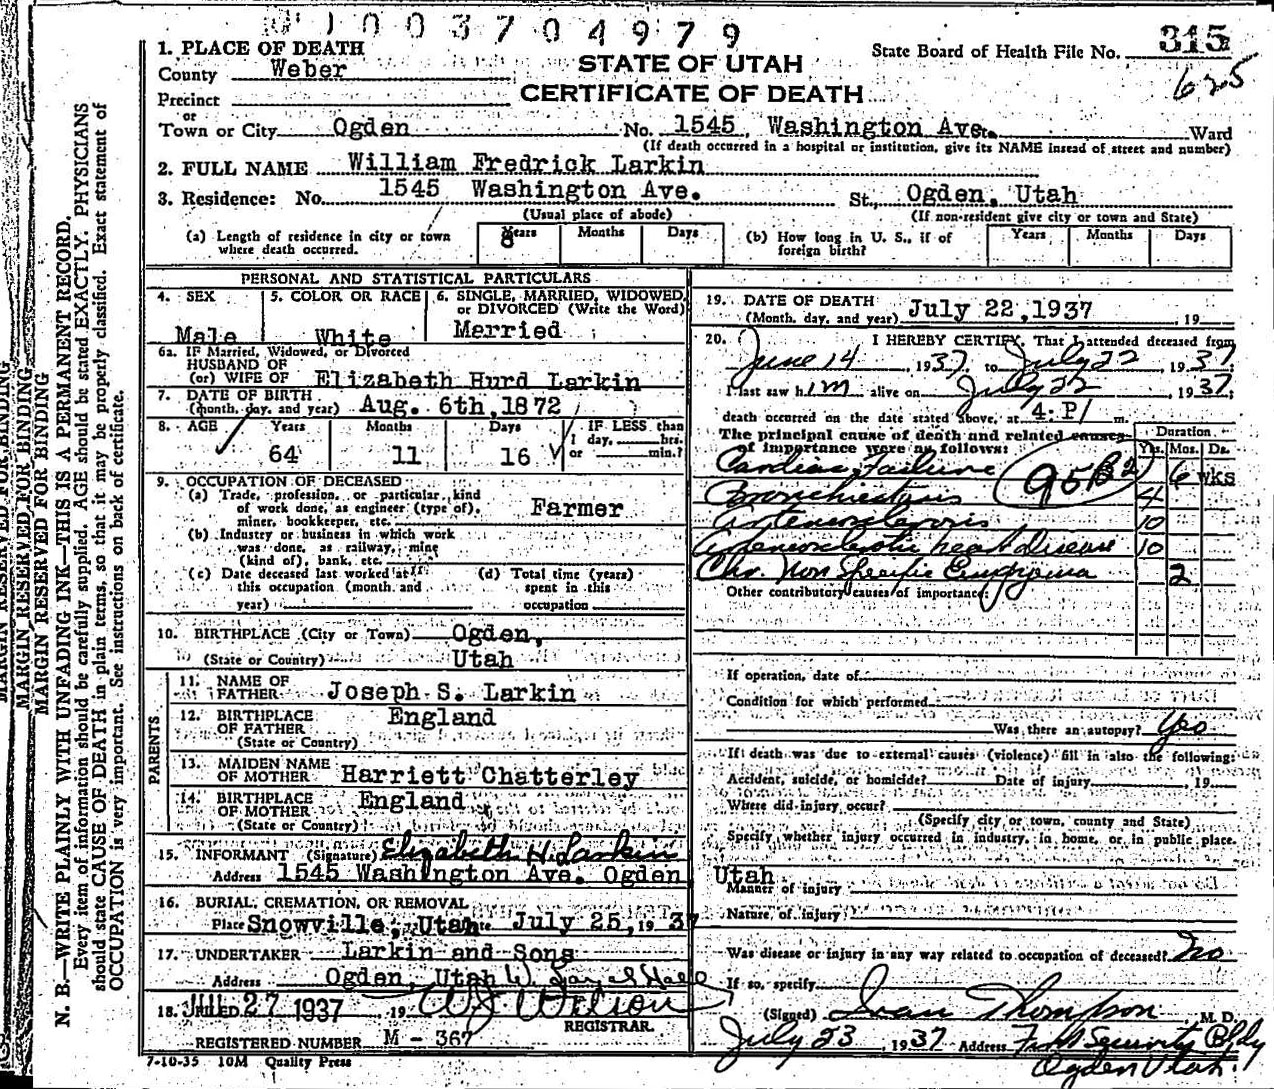 1003704979
1. PLACE OF DEATH
County Weber
STATE OF UTAH
State Board of Health File No. 315
625
CERTIFICATE OF DEATH
Precinct
or
Town or City Ogden No. 1545 Washington Ave. Ward
(If death occurred in a hospital or institution, give its NAME instead of street and number)
2. FULL NAME William Fredrick Larkin
3. Residence: No. 1545 Washington Ave. St., Ogden, Utah
(Usual place of abode) (If non-resident give city or town and State)
(a) Length of residence in city or town where death occurred. Years 8 Months Days
(b) How long in U. S., if of foreign birth? Years Months Days
PERSONAL AND STATISTICAL PARTICULARS
4. SEX Male
5. COLOR OR RACE White
6. SINGLE, MARRIED, WIDOWED, or DIVORCED (Write the Word) Married
6a. IF Married, Widowed, or Divorced
HUSBAND OF
(or) WIFE OF Elizabeth Hurd Larkin
7. DATE OF BIRTH
(month, day, and year) Aug. 6th, 1872
8. AGE Years 64 Months 11 Days 16 IF LESS than 1 day, hrs. or min.?
9. OCCUPATION OF DECEASED
(a) Trade, profession, or particular kind of work done, as engineer (type of), miner, bookkeeper, etc. Farmer
(b) Industry or business in which work was done, as railway, mine (kind of), bank, etc.
(c) Date deceased last worked at this occupation (month and year)
(d) Total time (years) spent in this occupation
10. BIRTHPLACE (City or Town) Ogden,
(State or Country) Utah
PARENTS
11. NAME OF FATHER Joseph S. Larkin
12. BIRTHPLACE OF FATHER England
(State or Country)
13. MAIDEN NAME OF MOTHER Harriett Chatterley
14. BIRTHPLACE OF MOTHER England
(State or Country)
15. INFORMANT (Signature) Elizabeth H. Larkin
Address 1545 Washington Ave. Ogden Utah
16. BURIAL, CREMATION, OR REMOVAL
Place Snowville, Utah July 25, 1937
17. UNDERTAKER Larkin and Sons
Address Ogden, Utah
18. FILED JUL 27 1937, 19 W. J. Wilson
REGISTRAR.
REGISTERED NUMBER M - 367
7-10-35 10M Quality Press
19. DATE OF DEATH
(Month, day, and year) July 22, 1937 19
20. I HEREBY CERTIFY, That I attended deceased from
June 14, 1937, to July 22, 1937
I last saw him alive on July 22, 1937;
death occurred on the date stated above, at 4: P m.
The principal cause of death and related causes of importance were as follows:
Duration
Yrs. Mos. Ds.
Cardiac Failure 6 wks
95B2
Bronchiectasis 4
Arteriosclerosis 10
Arteriosclerotic heart disease 10
Chr. Non Specific Empyema 2
Other contributory causes of importance:
If operation, date of
Condition for which performed
Was there an autopsy? Yes
If death was due to external causes (violence) fill in also the following:
Accident, suicide, or homicide? Date of injury, 19
Where did injury occur?
(Specify city or town, county and State)
Specify whether injury occurred in industry, in home, or in public place.
Manner of injury
Nature of injury
Was disease or injury in any way related to occupation of deceased? No
If so, specify
(Signed) Ivan Thompson, M. D.
July 23, 1937 Address First Security Bldg
Ogden Utah.
MARGIN RESERVED FOR BINDING
MARGIN RESERVED FOR BINDING
MARGIN RESERVED FOR BINDING
N. B.—WRITE PLAINLY WITH UNFADING INK—THIS IS A PERMANENT RECORD.
Every item of information should be carefully supplied. AGE should be stated EXACTLY. PHYSICIANS
should state CAUSE OF DEATH in plain terms, so that it may be properly classified. Exact statement of
OCCUPATION is very important. See instructions on back of certificate.